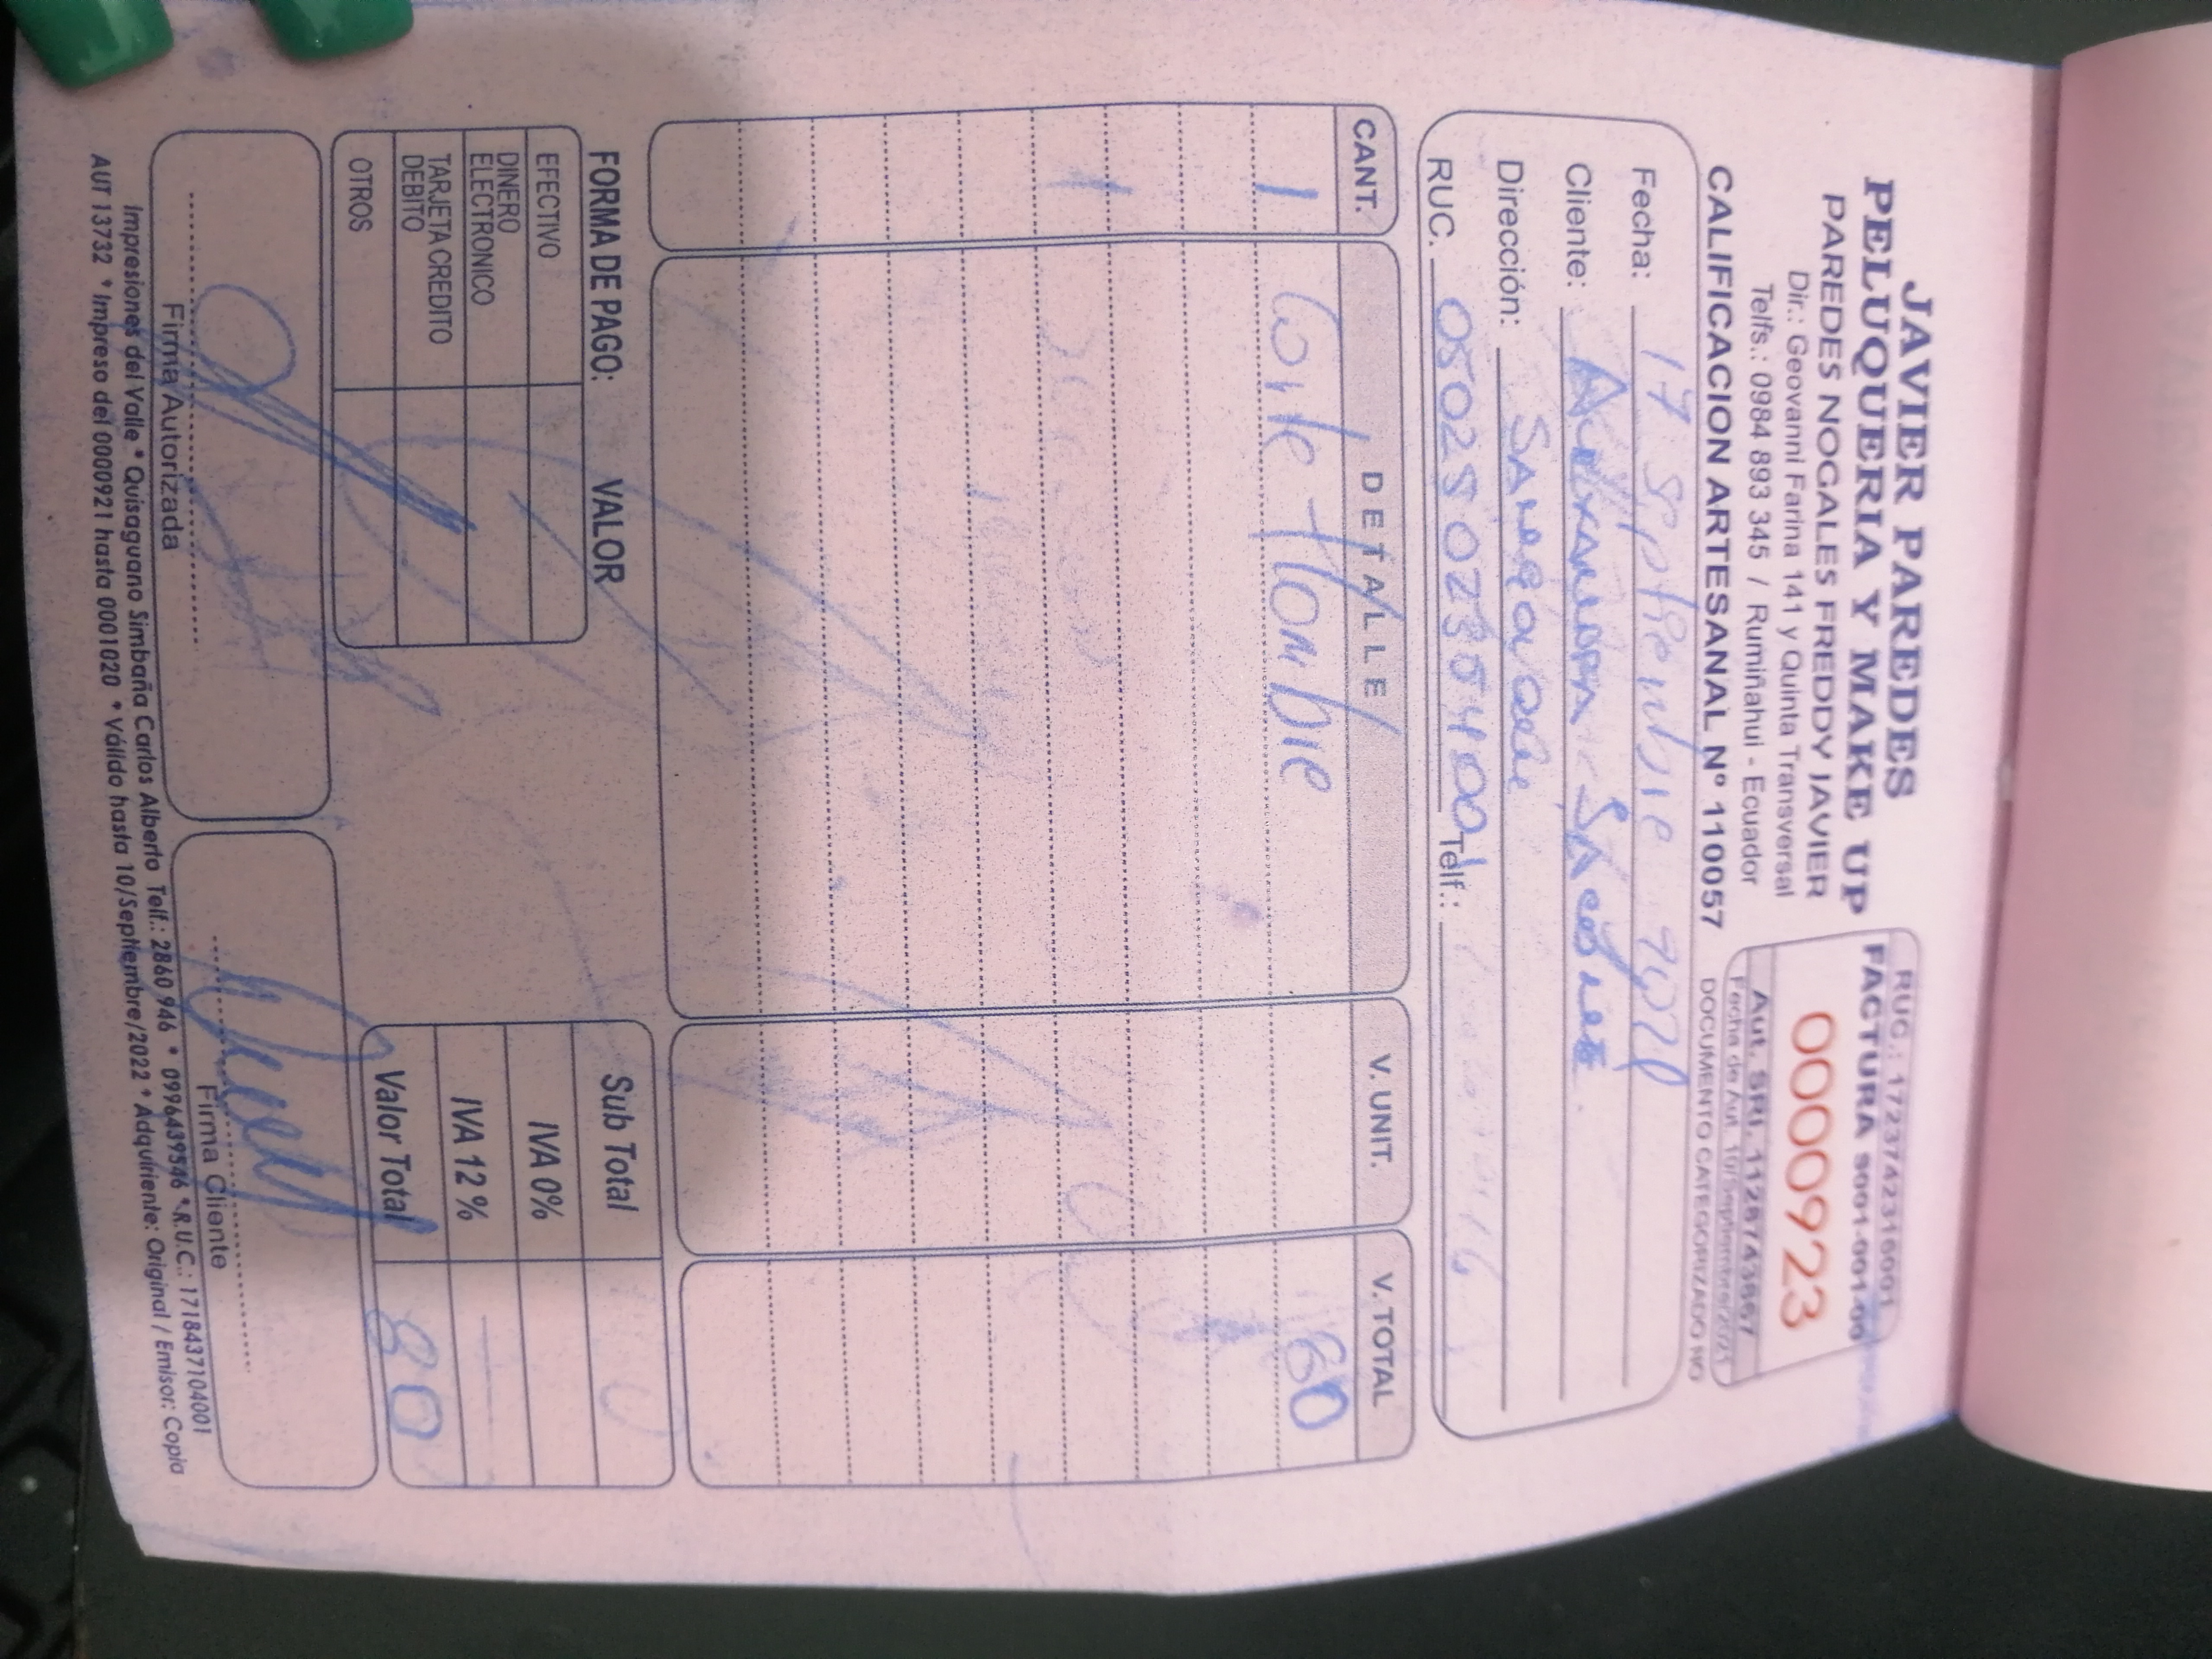 JAVIER PAREDES
PELUQUERIA Y MAKE UP
PAREDES NOGALES FREDDY JAVIER
Dir.: Geovanni Farina 141 y Quinta Transversal
Telfs.: 0984 893 345 / Rumiñahui - Ecuador
CALIFICACION ARTESANAL Nº 110057
RUC.: 1723742316001
FACTURA S001-001-00
0000923
Aut. SRI.
Fecha de Aut. 10/Septiembre/2021
DOCUMENTO CATEGORIZADO NO
Fecha: 17 septiembre
Cliente:
Dirección: SANGOLQUI
RUC. Telf.:
CANT. DETALLE V. UNIT. V. TOTAL
1 Corte Hombre
FORMA DE PAGO: VALOR
EFECTIVO
DINERO ELECTRONICO
TARJETA CREDITO DEBITO
OTROS
Sub Total
IVA 0%
IVA 12 %
Valor Total
Firma Autorizada
Firma Cliente
Impresiones del Valle * Quisaguano Simbaña Carlos Alberto Telf.: 2860 946 * 0996439546 * R.U.C.: 1718437104001
AUT 13732 * Impreso del 0000921 hasta 0001020 * Válido hasta 10/Septiembre/2022 * Adquiriente: Original / Emisor: Copia